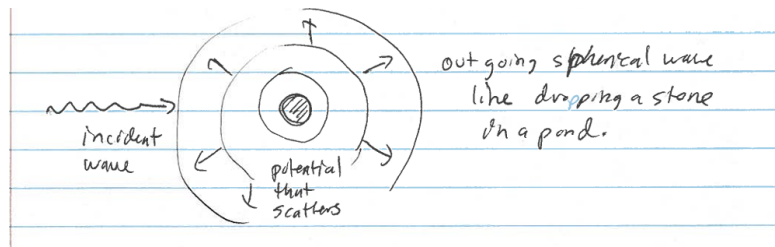 incident
wave
potential
that
scatters
outgoing spherical wave
like dropping a stone
in a pond.